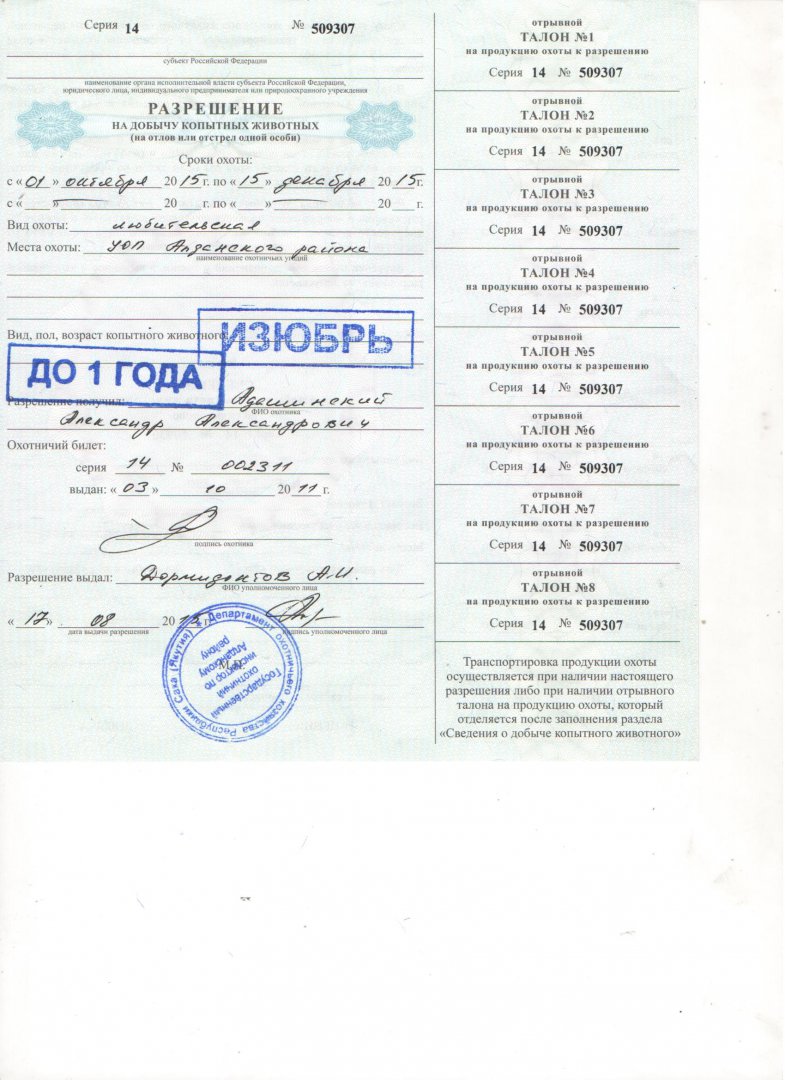 Серия 14 № 509307
субъект Российской Федерации
наименование органа исполнительной власти субъекта Российской Федерации,
юридического лица, индивидуального предпринимателя или природоохранного учреждения
РАЗРЕШЕНИЕ
НА ДОБЫЧУ КОПЫТНЫХ ЖИВОТНЫХ
(на отлов или отстрел одной особи)
Сроки охоты:
с «01» октября 2015 г. по «15» декабря 2015 г.
с « » 20 г. по « » 20 г.
Вид охоты: любительская
Места охоты: УОП Алданского района
наименование охотничьих угодий
Вид, пол, возраст копытного животного
ИЗЮБРЬ
ДО 1 ГОДА
Разрешение получил: Адашинский
ФИО охотника
Александр Александрович
Охотничий билет:
серия 14 № 002311
выдан: «03» 10 2011 г.
подпись охотника
Разрешение выдал: Дормидонтов А.И.
ФИО уполномоченного лица
«17» 08 2015 г.
дата выдачи разрешения подпись уполномоченного лица
М.П.
Департамент охотничьего хозяйства Республики Саха (Якутия)
Государственный
охотничий
инспектор по
Алданскому
району
отрывной
ТАЛОН №1
на продукцию охоты к разрешению
Серия 14 № 509307
отрывной
ТАЛОН №2
на продукцию охоты к разрешению
Серия 14 № 509307
отрывной
ТАЛОН №3
на продукцию охоты к разрешению
Серия 14 № 509307
отрывной
ТАЛОН №4
на продукцию охоты к разрешению
Серия 14 № 509307
отрывной
ТАЛОН №5
на продукцию охоты к разрешению
Серия 14 № 509307
отрывной
ТАЛОН №6
на продукцию охоты к разрешению
Серия 14 № 509307
отрывной
ТАЛОН №7
на продукцию охоты к разрешению
Серия 14 № 509307
отрывной
ТАЛОН №8
на продукцию охоты к разрешению
Серия 14 № 509307
Транспортировка продукции охоты
осуществляется при наличии настоящего
разрешения либо при наличии отрывного
талона на продукцию охоты, который
отделяется после заполнения раздела
«Сведения о добыче копытного животного»